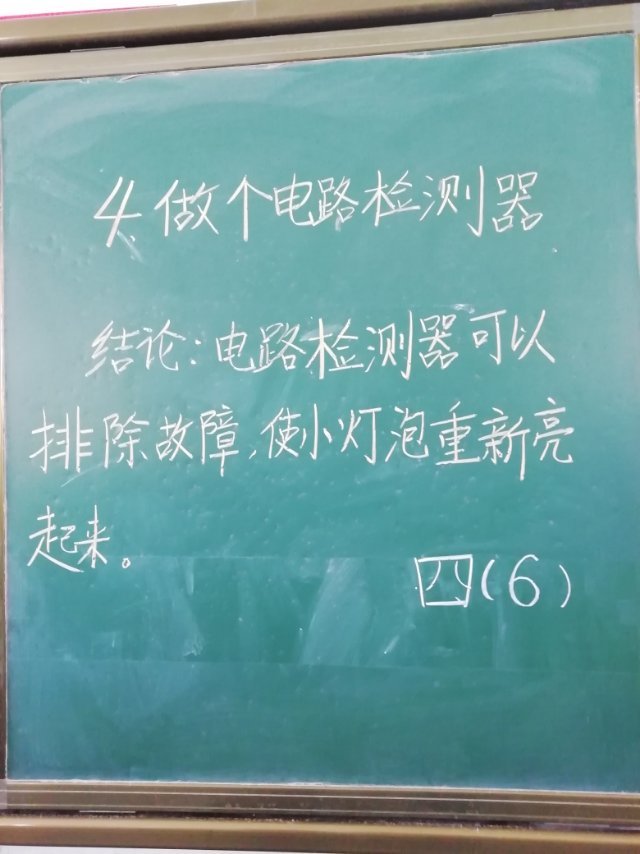 4、做个电路检测器
结论：电路检测器可以
排除故障，使小灯泡重新亮
起来。
四(6)